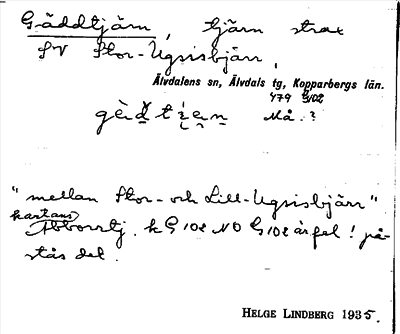 Gäddtjärn, tjärn strax
SV Stor-Ugsisbjärr,
Älvdalens sn, Älvdals tg, Kopparbergs län.
479 G/02
Må. ?
"mellan Stor- och Lill-Ugsisbjärr"
kartans
Abborrtj. k G 102 NO G 102 är fel! på-
stås det.
HELGE LINDBERG 1935.